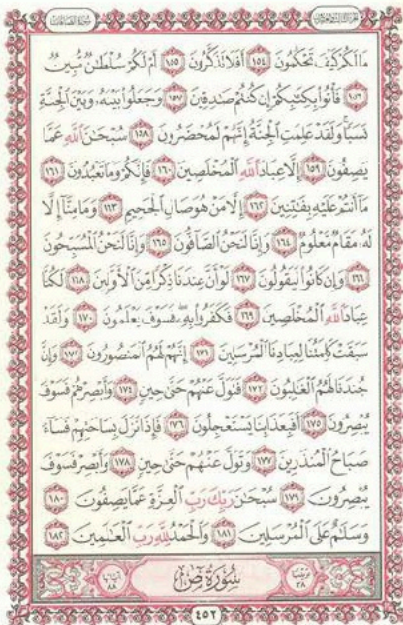 سُورَةُ الصَّافَّاتِ
الجُزْءُ الثَّالِثُ وَالعِشْرُونَ
مَا لَكُمْ كَيْفَ تَحْكُمُونَ ١٥٤ أَفَلَا تَذَكَّرُونَ ١٥٥ أَمْ لَكُمْ سُلْطَٰنٌ مُّبِينٌ
١٥٦ فَأْتُوا۟ بِكِتَٰبِكُمْ إِن كُنتُمْ صَٰدِقِينَ ١٥٧ وَجَعَلُوا۟ بَيْنَهُۥ وَبَيْنَ ٱلْجِنَّةِ
نَسَبًا ۚ وَلَقَدْ عَلِمَتِ ٱلْجِنَّةُ إِنَّهُمْ لَمُحْضَرُونَ ١٥٨ سُبْحَٰنَ ٱللَّهِ عَمَّا
يَصِفُونَ ١٥٩ إِلَّا عِبَادَ ٱللَّهِ ٱلْمُخْلَصِينَ ١٦٠ فَإِنَّكُمْ وَمَا تَعْبُدُونَ ١٦١
مَآ أَنتُمْ عَلَيْهِ بِفَٰتِنِينَ ١٦٢ إِلَّا مَنْ هُوَ صَالِ ٱلْجَحِيمِ ١٦٣ وَمَا مِنَّآ إِلَّا
لَهُۥ مَقَامٌ مَّعْلُومٌ ١٦٤ وَإِنَّا لَنَحْنُ ٱلصَّآفُّونَ ١٦٥ وَإِنَّا لَنَحْنُ ٱلْمُسَبِّحُونَ
١٦٦ وَإِن كَانُوا۟ لَيَقُولُونَ ١٦٧ لَوْ أَنَّ عِندَنَا ذِكْرًا مِّنَ ٱلْأَوَّلِينَ ١٦٨ لَكُنَّا
عِبَادَ ٱللَّهِ ٱلْمُخْلَصِينَ ١٦٩ فَكَفَرُوا۟ بِهِۦ ۖ فَسَوْفَ يَعْلَمُونَ ١٧٠ وَلَقَدْ
سَبَقَتْ كَلِمَتُنَا لِعِبَادِنَا ٱلْمُرْسَلِينَ ١٧١ إِنَّهُمْ لَهُمُ ٱلْمَنصُورُونَ ١٧٢ وَإِنَّ
جُندَنَا لَهُمُ ٱلْغَٰلِبُونَ ١٧٣ فَتَوَلَّ عَنْهُمْ حَتَّىٰ حِينٍ ١٧٤ وَأَبْصِرْهُمْ فَسَوْفَ
يُبْصِرُونَ ١٧٥ أَفَبِعَذَابِنَا يَسْتَعْجِلُونَ ١٧٦ فَإِذَا نَزَلَ بِسَاحَتِهِمْ فَسَآءَ
صَبَاحُ ٱلْمُنذَرِينَ ١٧٧ وَتَوَلَّ عَنْهُمْ حَتَّىٰ حِينٍ ١٧٨ وَأَبْصِرْ فَسَوْفَ
يُبْصِرُونَ ١٧٩ سُبْحَٰنَ رَبِّكَ رَبِّ ٱلْعِزَّةِ عَمَّا يَصِفُونَ ١٨٠
وَسَلَٰمٌ عَلَى ٱلْمُرْسَلِينَ ١٨١ وَٱلْحَمْدُ لِلَّهِ رَبِّ ٱلْعَٰلَمِينَ ١٨٢
ترتيبها ٣٨ سُورَةُ صٓ آياتها ٨٨
٤٥٢